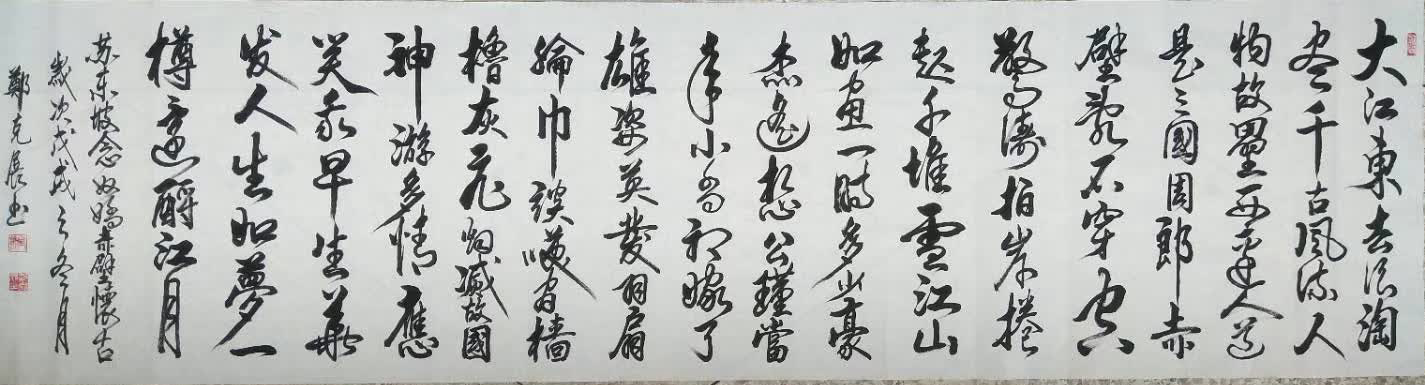 大江東去浪淘
尽千古風流人
物故壘西邊人道
是三國周郎赤
壁亂石穿空
驚濤拍岸捲
起千堆雪江山
如画一時多少豪
杰遙想公瑾當
年小喬初嫁了
雄姿英發羽扇
綸巾談咲间檣
櫓灰飛烟滅故國
神游多情應
笑我早生華
发人生如夢一
樽還酹江月
苏东坡念奴嬌赤壁懷古
歲次戊戌之冬月
鄭克展书